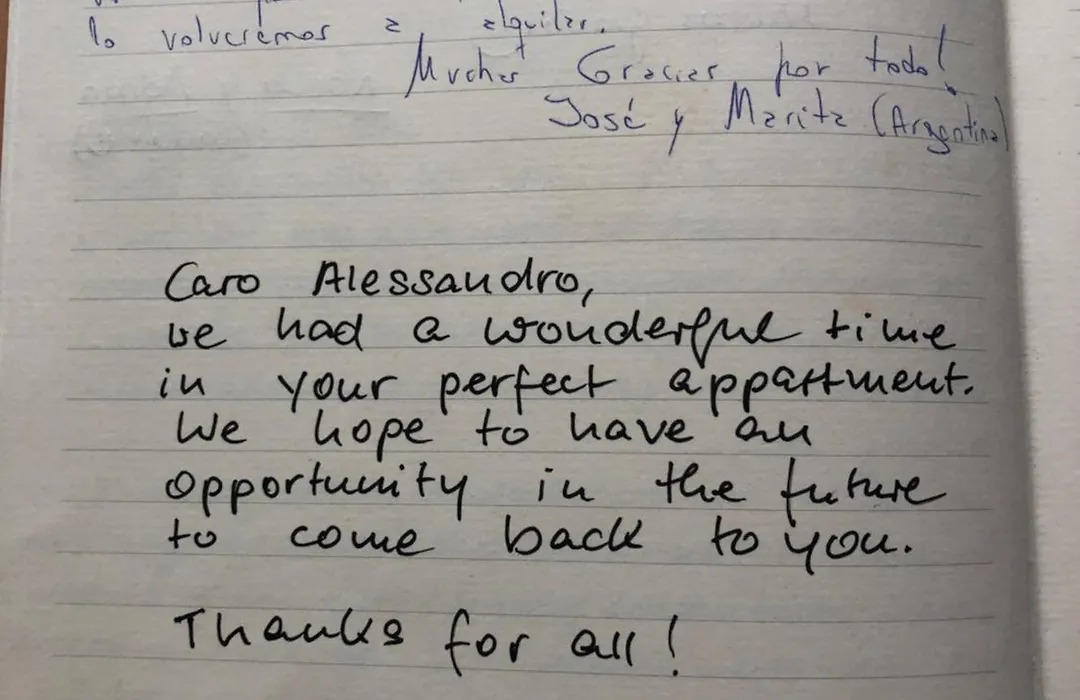 lo volveremos a alquilar.
Muchas Gracias por todo!
José y Marita (Argentina)
Caro Alessandro,
we had a wonderful time
in your perfect appartment.
We hope to have an
opportunity in the future
to come back to you.
Thanks for all!